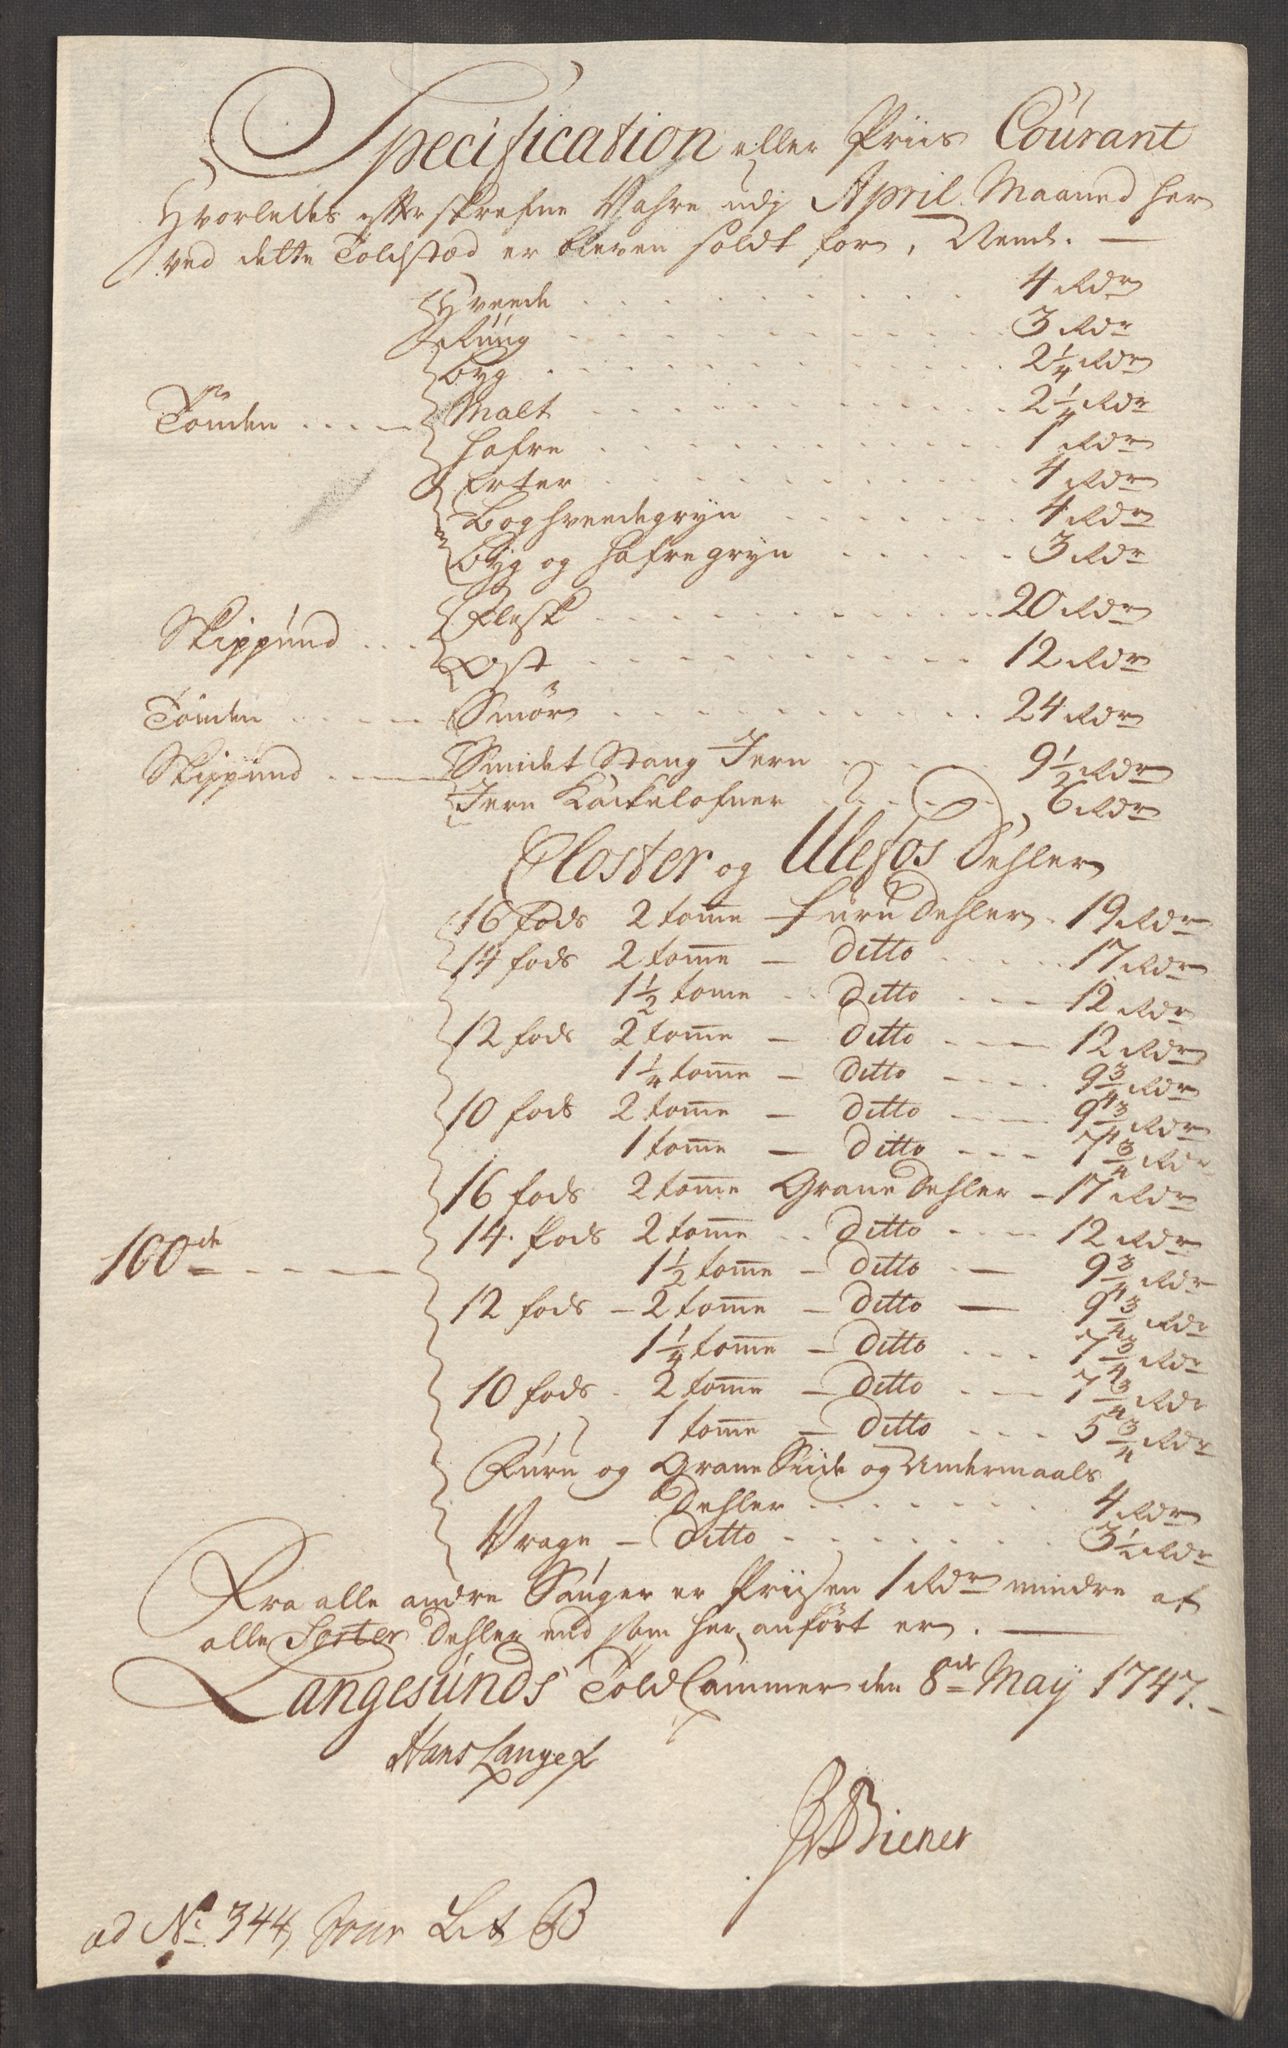 Specification eller Priis Courant
Hvorledes efterskrefne Vahre udj April Maaned her
ved dette Toldstæd er bleven soldt for, Neml. —
Hveede . . . . 4 Rdr
Rúúg . . . . 3 Rdr
Byg . . . . 2 1/4 Rdr
Tönden . . . . Malt . . . . 2 1/4 Rdr
Hafre . . . . 1 Rdr
Erter . . . . 4 Rdr
Boghveedegryn . . . . 4 Rdr
Byg og Hafregryn . . . . 3 Rdr
Flesk . . . . 20 Rdr
Skippúnd . . .
Ost . . . . 12 Rdr
Tönden . . . . Smör . . . . 24 Rdr
Skippúnd . . . . Smidet Stang Jern . . . . 9 1/2 Rdr
Jern Kackelofner . . . . 6 Rdr
Closter og Ulefos Dehler
16 Fods 2 tomme Furu Dehler . 19 Rdr
14 fods 2 tomme — Ditto . . . . 17 Rdr
1 1/2 tome . . Ditto . . . . 12 Rdr
12 fods 2 tomme — Ditto . . . . 12 Rdr
1 1/4 tomme — Ditto . . . . 9 3/4 Rdr
10 fods 2 tomme — Ditto . . . . 9 3/4 Rdr
1 tomme — Ditto . . . . 7 3/4 Rdr
16 fods 2 tomme Grane Dehler — 17 Rdr
14. Fods 2 tomme . . Ditto . . . . 12 Rdr
100de . . . . 1 1/2 tomme — Ditto . — 9 3/4 Rdr
12 fods — 2 tomme — Ditto — 9 3/4 Rdr
1 1/4 tomme — Ditto . . . 7 3/4 Rdr
10 fods . 2 tomme — Ditto . . . . 7 3/4 Rdr
1 tomme — Ditto . . . 5 3/4 Rdr
Furu og Grane Siide og Undermaals
Dehler . . . . 4 Rdr
Vrage — Ditto . . . . 3 1/2 Rdr
Fra alle andre Sauger er Priisen 1 Rdr mindre af
alle Sorter Dehler end som her anfört er. —
Langesúnds Told Cammer den 8de May 1747. —
Hans Lange
Biener
ad No 344, Lit B